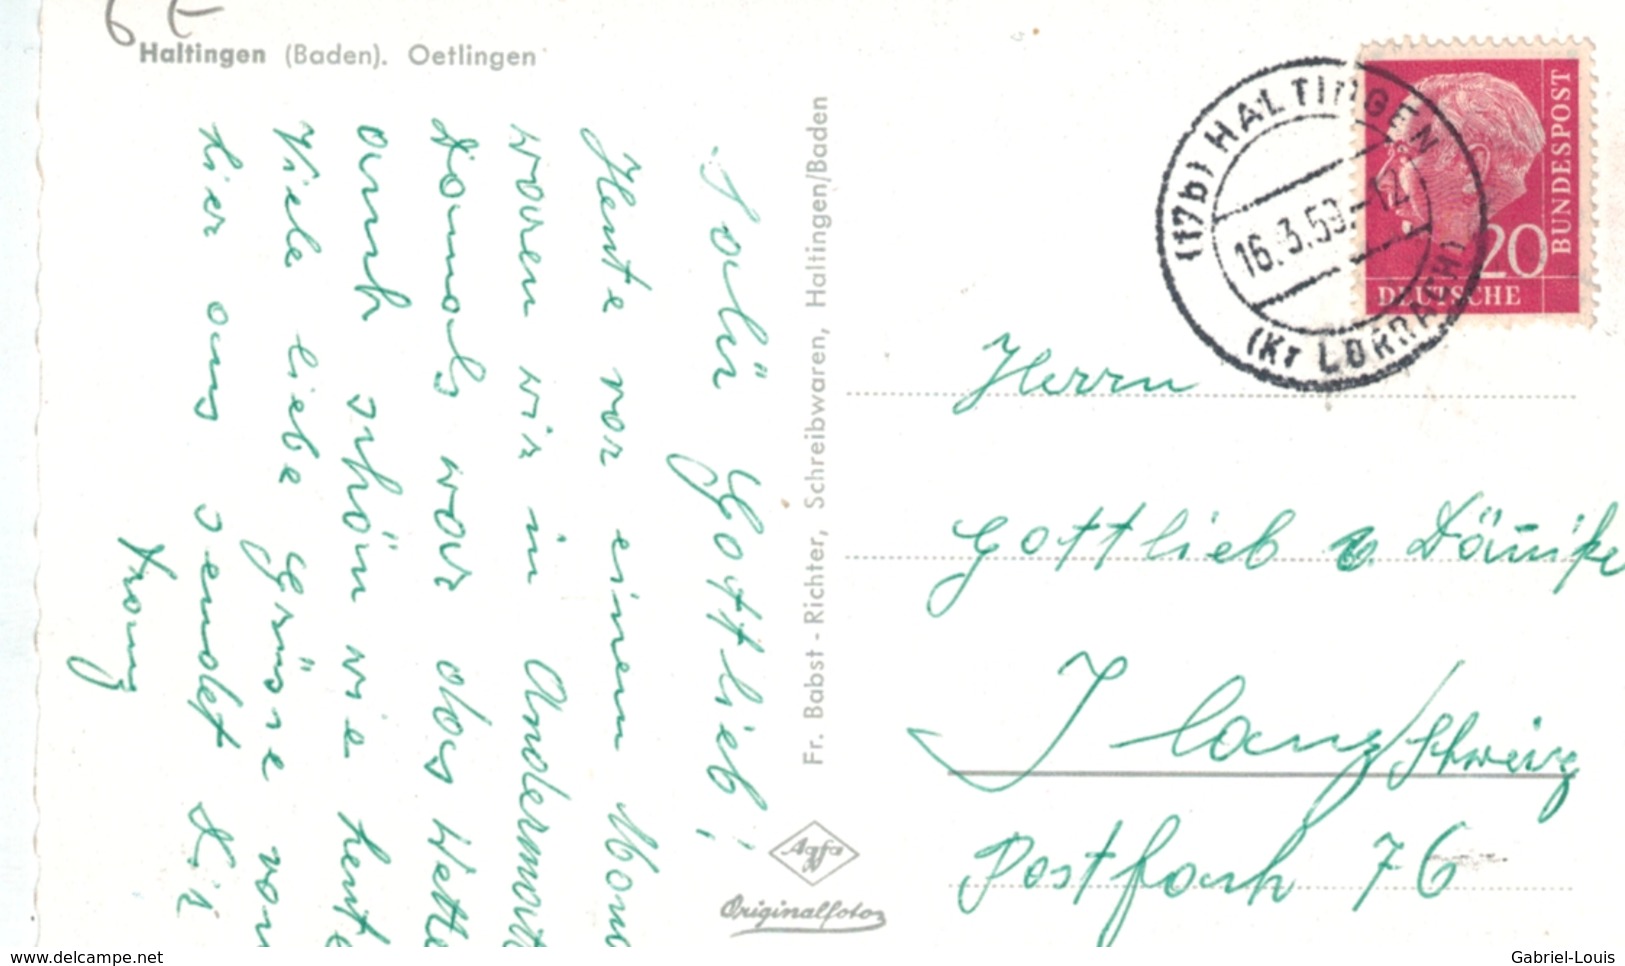 6 E
Haltingen (Baden). Oetlingen
Salü Gottlieb!
Heute vor einem Mona
waren wir in Andermatt
Damals war das Wette
auch schön wie heute
Viele liebe Grüsse von
hier aus sendet Dir
Franz
Fr. Babst - Richter, Schreibwaren, Haltingen/Baden
Agfa
Originalfoto
(17b) HALTINGEN
16.3.59.-12
(Kr LÖRRACH)
20
BUNDESPOST
DEUTSCHE
Herrn
Gottlieb v. Dänike
Ilanz/Schweiz
Postfach 76
www.delcampe.net
Gabriel-Louis